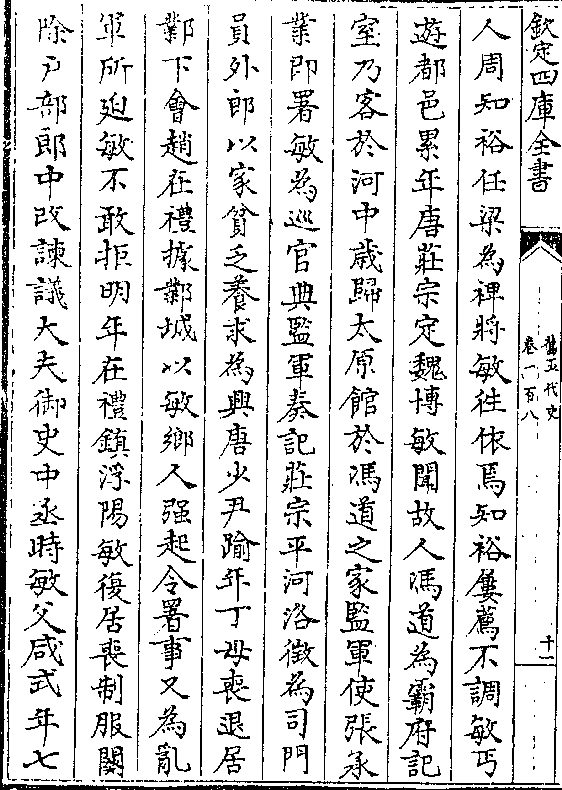 欽定四庫全書
舊五代史
卷一百八
十一
人周知裕任梁為裨將敏徃依焉知裕屢薦不調敏丐
遊都邑累年唐莊宗定魏博敏聞故人馮道為霸府記
室乃客於河中歲歸太原館於馮道之家監軍使張承
業即署敏為巡官典監軍奏記莊宗平河洛徵為司門
員外郎以家貧乏養求為興唐少尹踰年丁母喪退居
鄴下會趙在禮據鄴城以敏鄉人强起令署事又為亂
軍所廹敏不敢拒明年在禮鎮浮陽敏復居喪制服闋
除户部郎中改諫議大夫御史中丞時敏父咸式年七